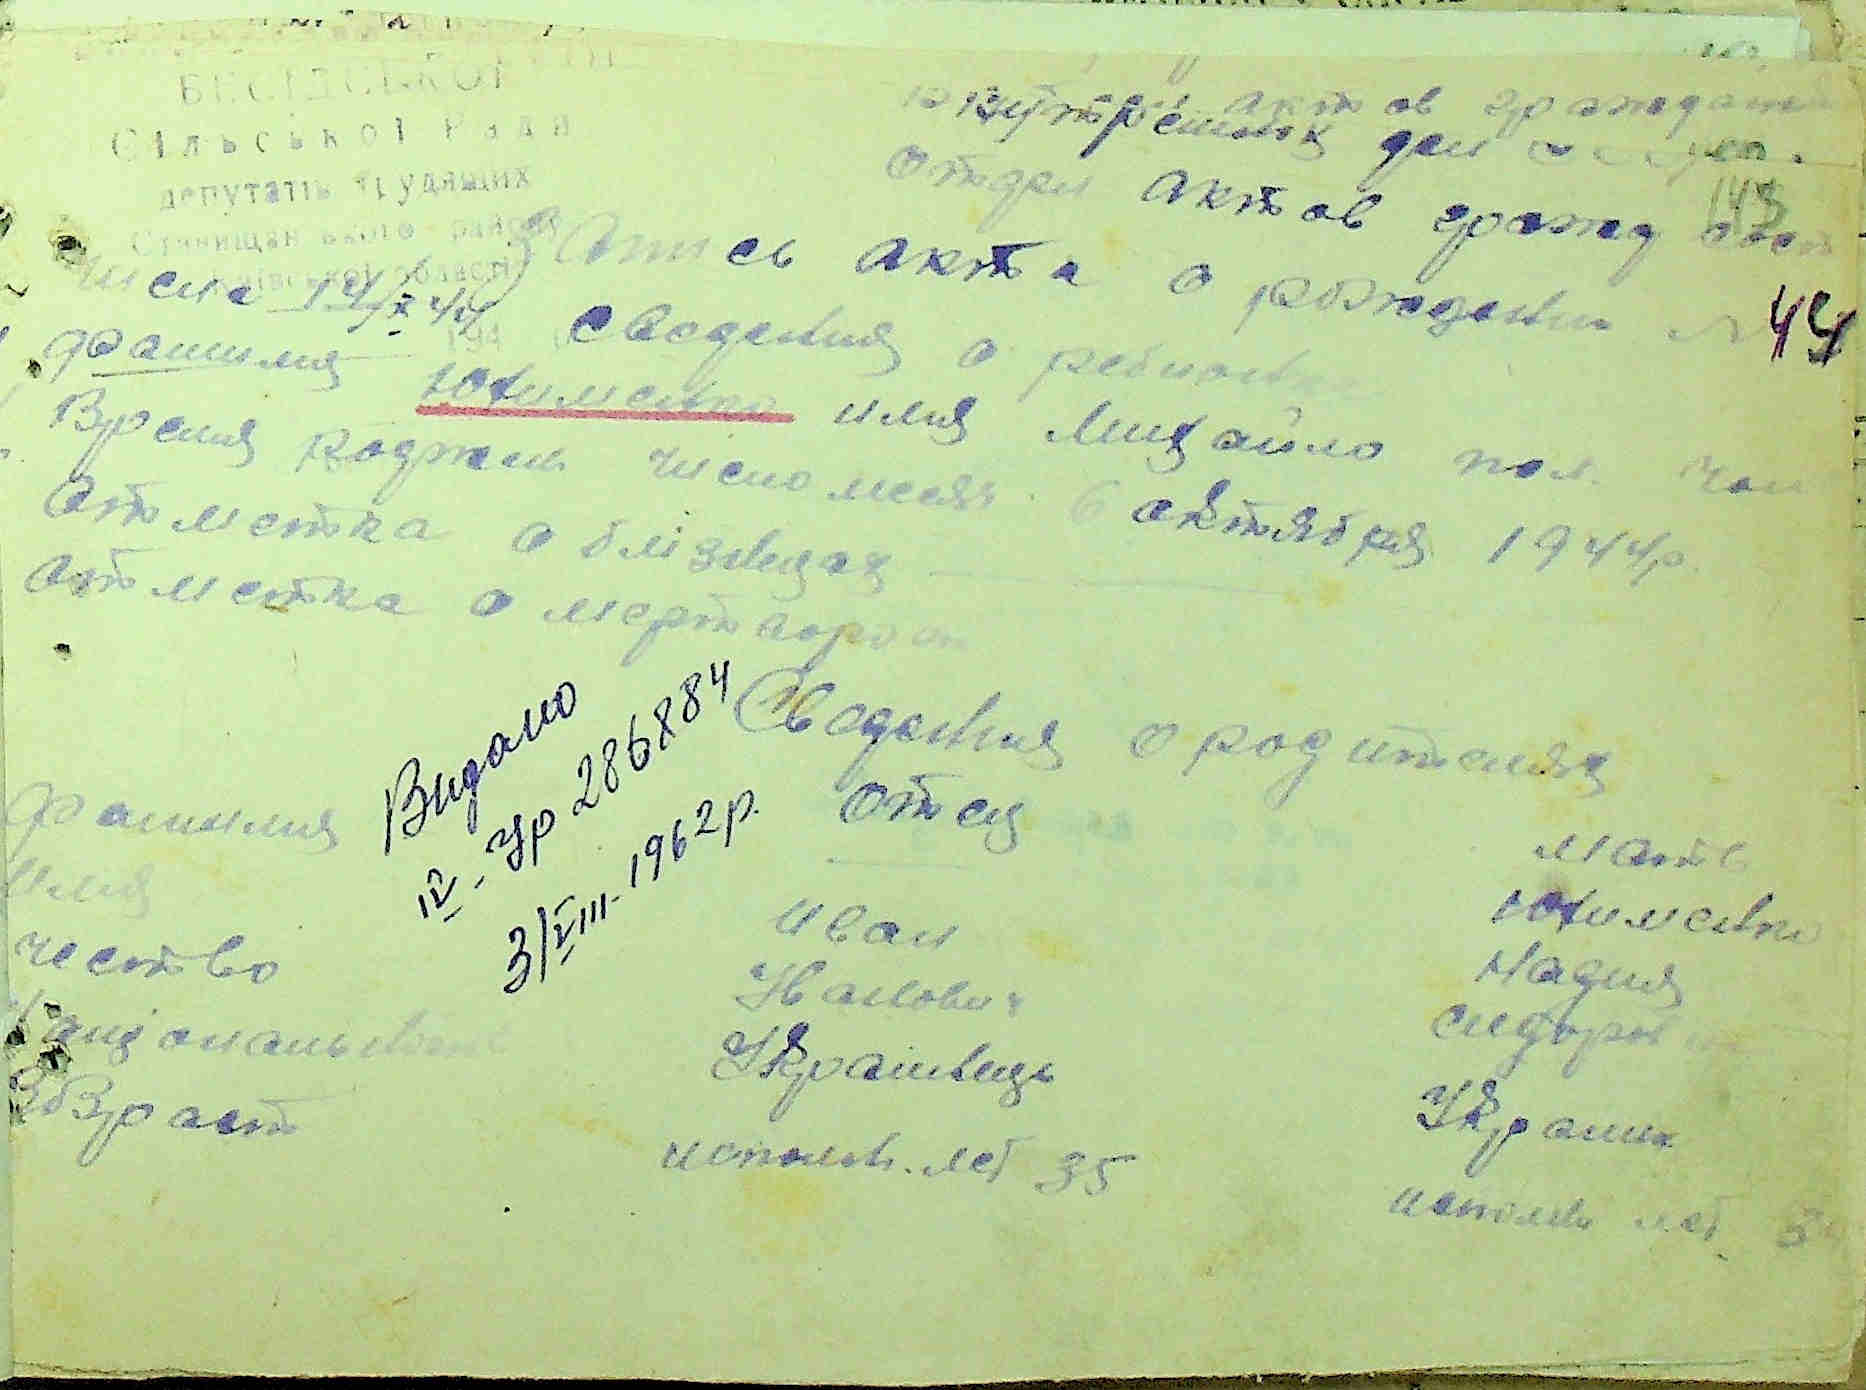 БЕСІДСЬКОЇ
Сільської Ради
депутатів трудящих
Ставищан ського району
Київської області
актов гражданск
внутренних дел
отдел актов гражд сост
143
Запись акта о рождении № 44
числа 14/X 44 194
сведения о ребионке
фамилия Юхименко имя Михайло пол. чол
Время рождень число месяц 6 октября 1944р.
отметка о близнецах
отметка о мертворож
Видано
IV-Ур 286884
3/VIII-1962р.
Сведения о родителях
отец мать
фамилия Юхименко
имя Иван Надия
чество Сидоров
Національность Українець Украинк
Возраст исполн. лет 35 исполн лет 3